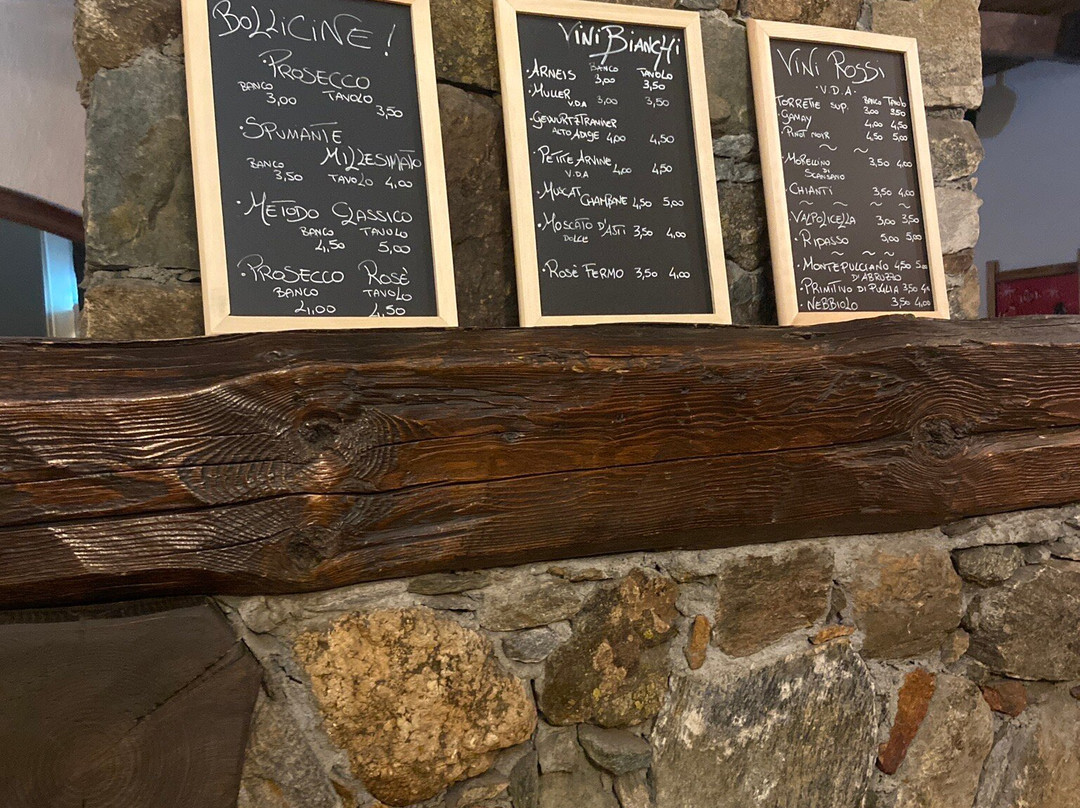 BOLLICINE!
·PROSECCO
BANCO TAVOLO
3,00 3,50
·SPUMANTE
MILLESIMATO
BANCO TAVOLO
3,50 4,00
·METODO CLASSICO
BANCO TAVOLO
4,50 5,00
·PROSECCO ROSÈ
BANCO TAVOLO
4,00 4,50
VINI BIANCHI
BANCO TAVOLO
·ARNEIS 3,00 3,50
·MULLER
V.D.A 3,00 3,50
·GEWURTZTRAMINER
ALTO ADIGE 4,00 4,50
·PETITE ARVINE
V.D.A 4,00 4,50
·MUSCAT CHAMBANE 4,50 5,00
·MOSCATO D'ASTI 3,50 4,00
DOLCE
·ROSÈ FERMO 3,50 4,00
VINI ROSSI
·V.D.A·
BANCO TAVOLO
TORRETTE SUP. 3,00 3,50
·GAMAY 4,00 4,50
·PINOT NOIR 4,50 5,00
~ ~
·MORELLINO 3,50 4,00
DI
SCANSANO
·CHIANTI 3,50 4,00
~ ~ ~ ~
·VALPOLICELLA 3,00 3,50
·RIPASSO 5,00 5,00
~ ~ ~ ~
·MONTEPULCIANO 4,50 5,00
DI ABRUZZO
·PRIMITIVO DI PUGLIA 3,50 4,00
·NEBBIOLO 3,50 4,00